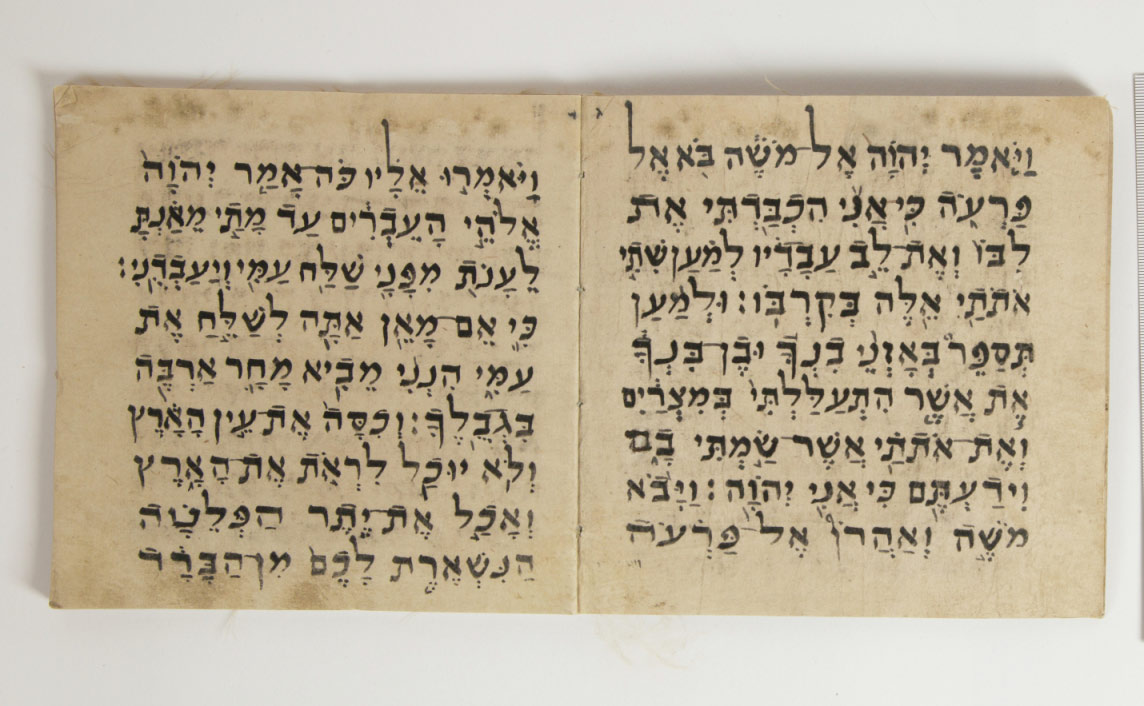 וַיֹּאמֶר יְהוָה אֶל־מֹשֶׁה בֹּא אֶל
פַּרְעֹה כִּי־אֲנִי הִכְבַּדְתִּי אֶת
לִבּוֹ וְאֶת־לֵב עֲבָדָיו לְמַעַן שִׁתִי
אֹתֹתַי אֵלֶּה בְּקִרְבּוֹ׃ וּלְמַעַן
תְּסַפֵּר בְּאָזְנֵי בִנְךָ וּבֶן־בִּנְךָ
אֵת אֲשֶׁר הִתְעַלַּלְתִּי בְּמִצְרַיִם
וְאֶת־אֹתֹתַי אֲשֶׁר־שַׂמְתִּי בָם
וִידַעְתֶּם כִּי־אֲנִי יְהוָה׃ וַיָּבֹא
מֹשֶׁה וְאַהֲרֹן אֶל־פַּרְעֹה
וַיֹּאמְרוּ אֵלָיו כֹּה־אָמַר יְהוָה
אֱלֹהֵי הָעִבְרִים עַד־מָתַי מֵאַנְתָּ
לֵעָנֹת מִפָּנָי שַׁלַּח עַמִּי וְיַעַבְדֻנִי׃
כִּי אִם־מָאֵן אַתָּה לְשַׁלֵּחַ אֶת
עַמִּי הִנְנִי מֵבִיא מָחָר אַרְבֶּה
בִּגְבֻלֶךָ׃ וְכִסָּה אֶת־עֵין הָאָרֶץ
וְלֹא יוּכַל לִרְאֹת אֶת־הָאָרֶץ
וְאָכַל אֶת־יֶתֶר הַפְּלֵטָה
הַנִּשְׁאֶרֶת לָכֶם מִן־הַבָּרָד